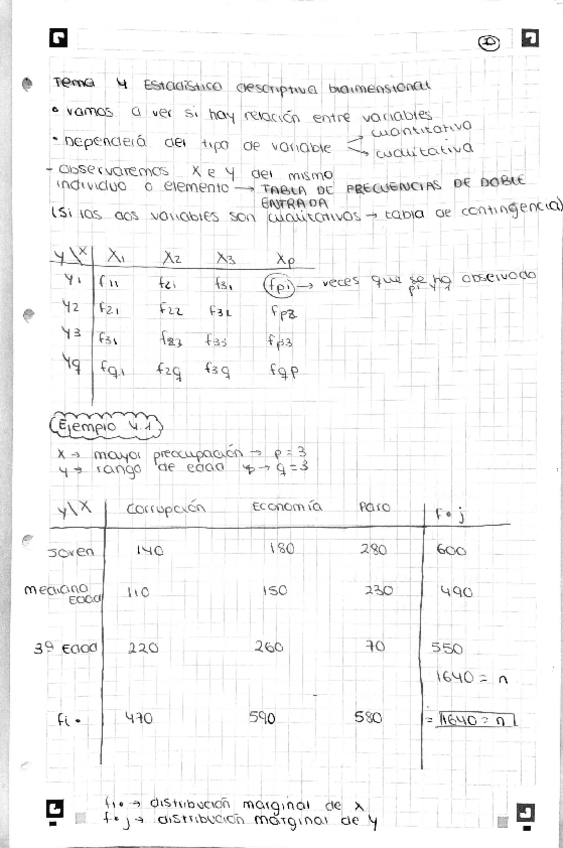 Tema 4 Estadística descriptiva bidimensional
• vamos a ver si hay relación entre variables
• Dependerá del tipo de variable → cuantitativa
→ cualitativa
- observaremos X e Y del mismo
individuo o elemento → TABLA DE FRECUENCIAS DE DOBLE
ENTRADA
(Si las dos variables son cualitativos → tabla de contingencia)
Y\X X1 X2 X3 Xp
Y1 f11 f21 f31 fp1 → veces que se ha observado
p1 y 1
Y2 f21 f22 f32 fp2
Y3 f31 f23 f33 fp3
Yq fq1 f2q f3q fqp
Ejemplo 4.1
X → mayor preocupación → p = 3
Y → rango de edad → q = 3
Y\X Corrupción Economía Paro f•j
Joven 140 180 280 600
mediana
Edad 110 150 230 490
3ª Edad 220 260 70 550
1640 = n
fi• 470 590 580 = 1640 = n
fi• → distribución marginal de x
f•j → distribución marginal de y